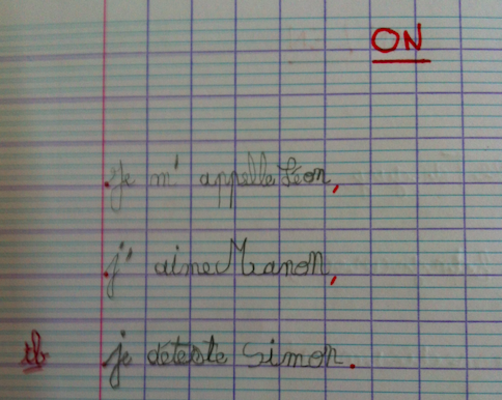 ON
Je m'appelle Léon,
j'aime Manon,
tb je déteste Simon.